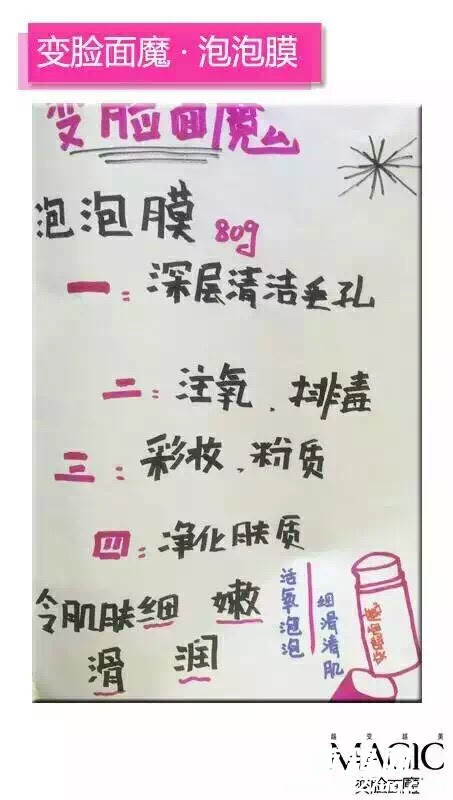 变脸面魔·泡泡膜
变脸面魔
泡泡膜 80g
一：深层清洁垂孔
二：注氧、排毒
三：彩妆、粉质
四：净化肤质
令肌肤细 嫩
滑 润
活氧泡泡
细滑清肌
变脸面魔
越变越美
MAGIC
变脸面魔